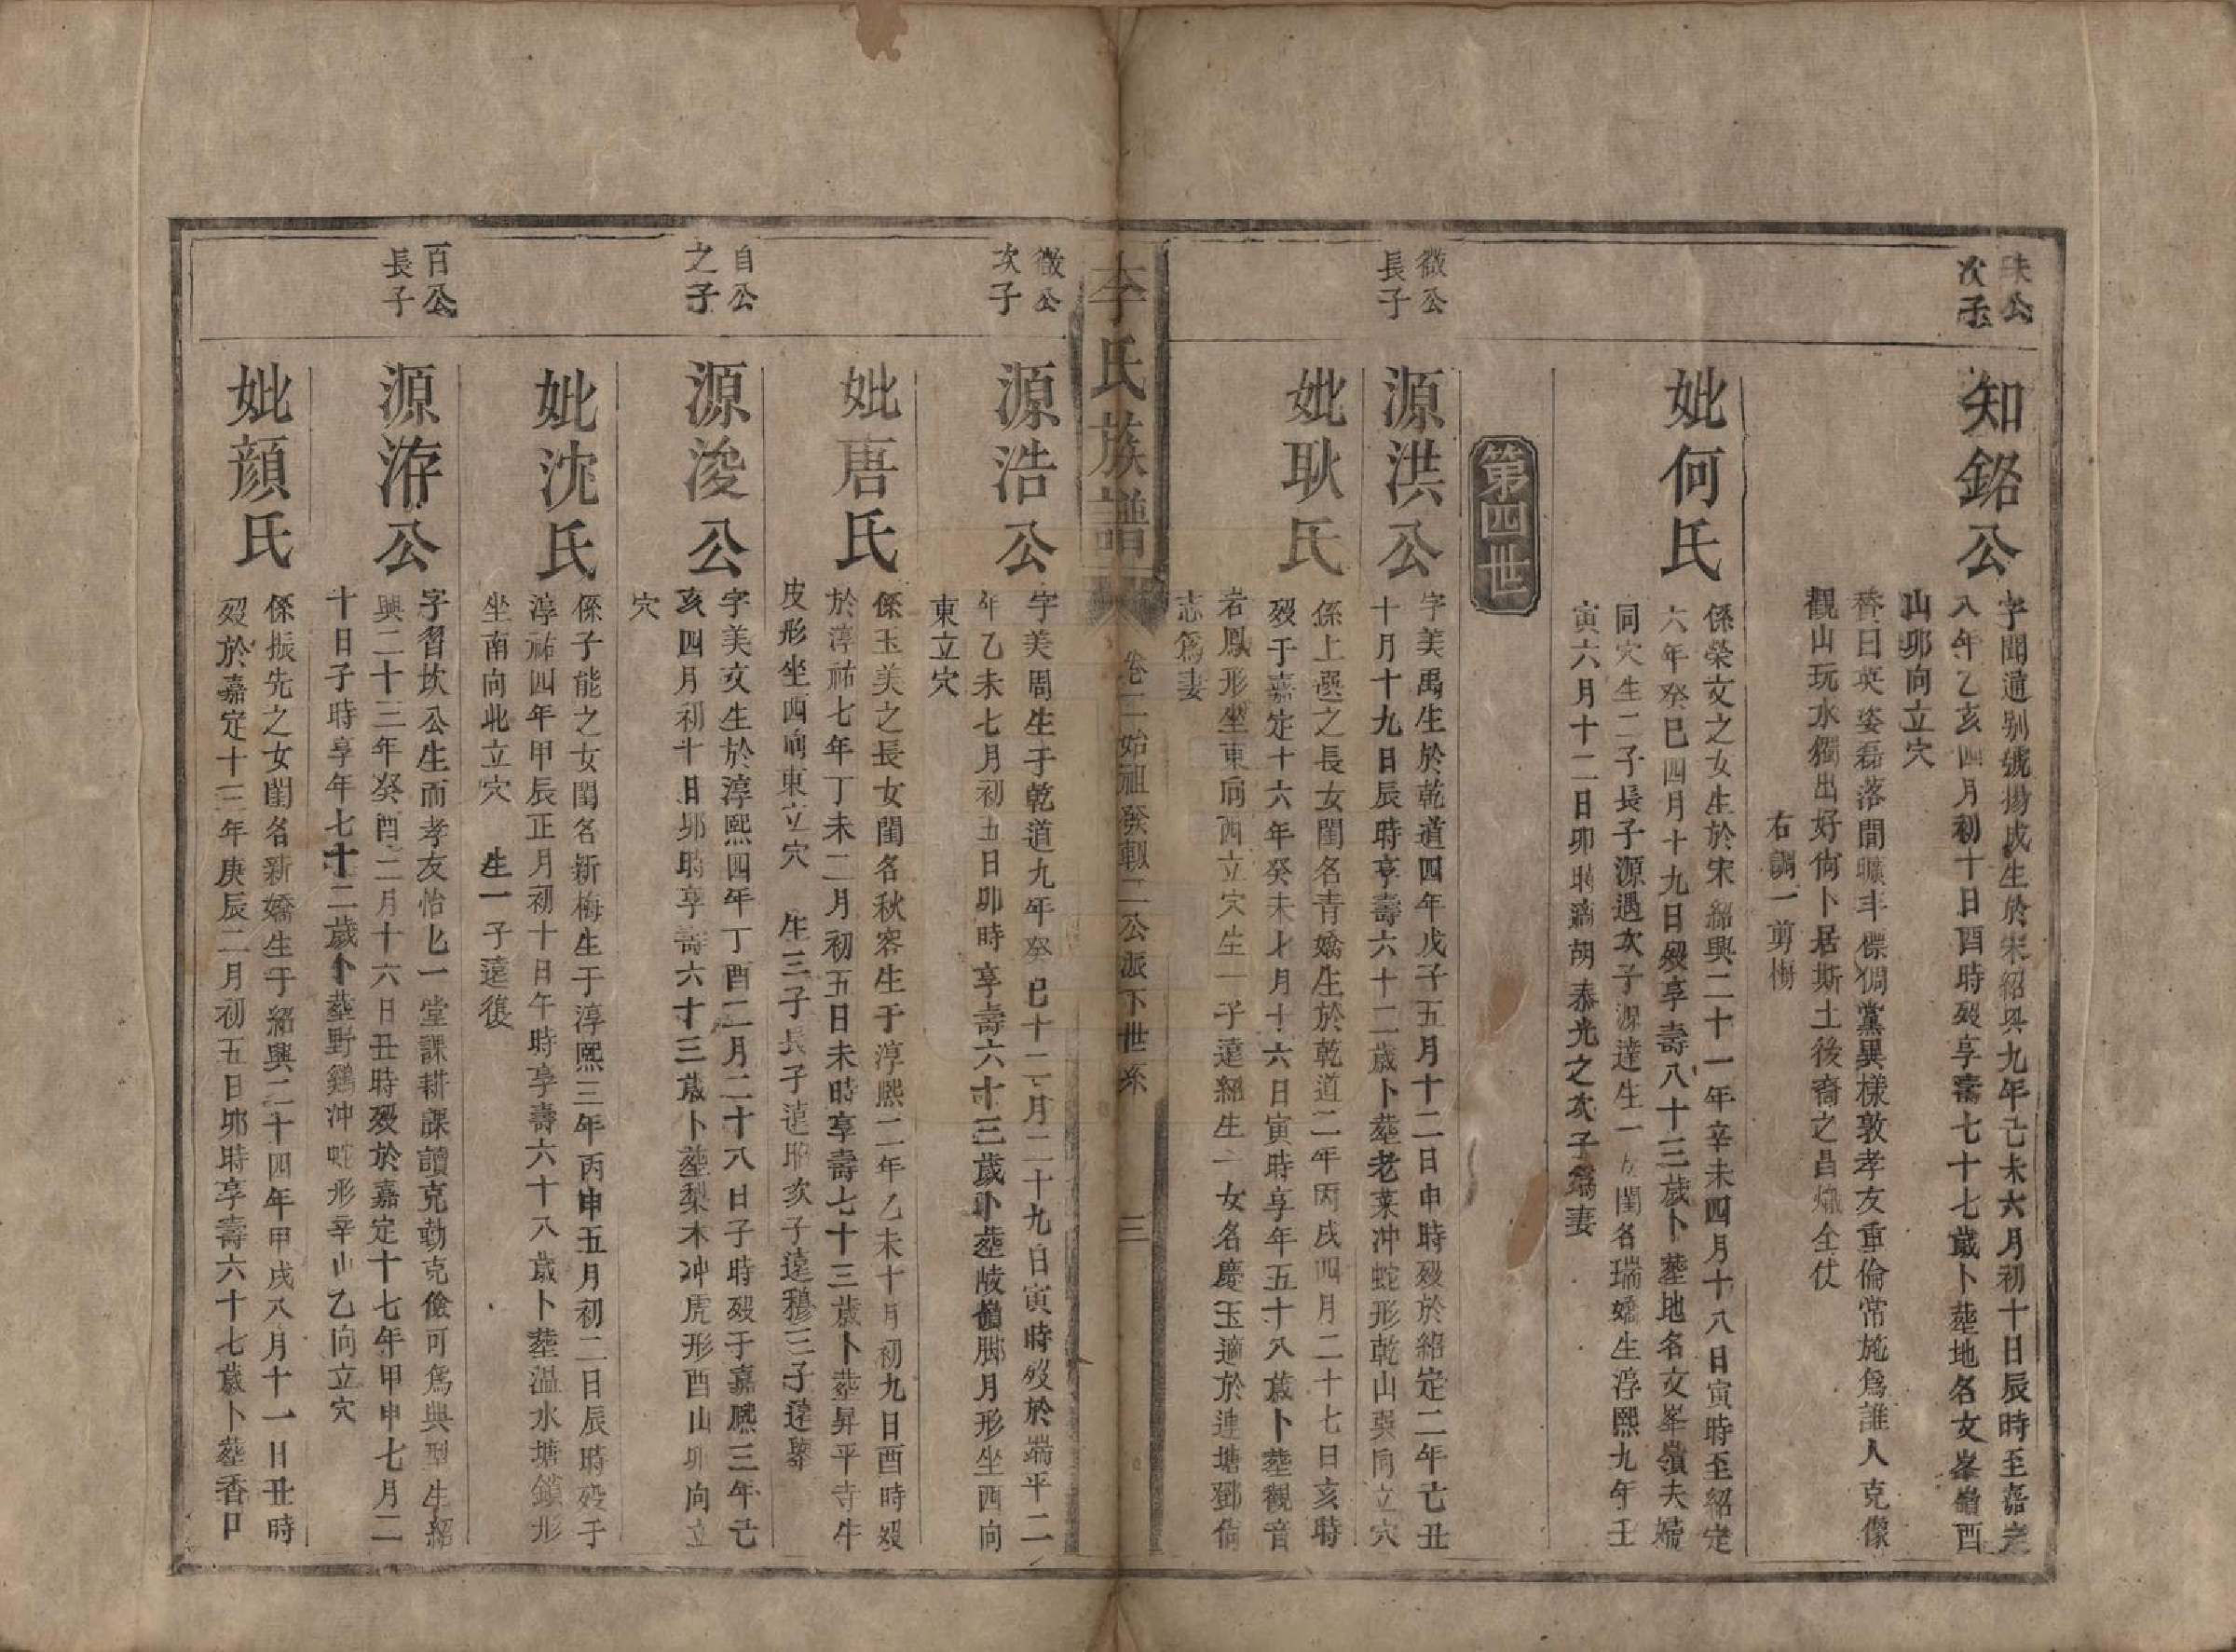 夫公
次子
知鉻公
字聞通别號揚成生於宋紹興九年己未六月初十日辰時至嘉定
八年乙亥四月初十日酉時歿享壽七十七歲卜塟地名文峯嶺酉
山卯向立穴
替曰英姿磊落間曠丰儝倜黨異樣敦孝友重倫常施爲誰人克像
觀山玩水獨出好尙卜居斯土後裔之昌熾全仗
右調一剪梅
妣何氏
係榮文之女生於宋紹興二十一年辛未四月十八日寅時至紹定
六年癸巳四月十九日歿享壽八十三歲卜塟地名文峯嶺夫墳
同穴生二子長子源遇次子源達生一女閨名瑞嬌生淳熙九年壬
寅六月十二日卯時適胡泰光之次子爲妻
第四世
微公
長子
源洪公
字美禹生於乾道四年戊子五月十二日申時歿於紹定二年己丑
十月十九日辰時享壽六十二歲卜塟老菜冲蛇形乾山巽向立穴
妣耿氏
係上選之長女閨名青嬌生於乾道二年丙戌四月二十七日亥時
歿于嘉定十六年癸未七月十六日寅時享年五十八歲卜塟觀音
岩鳳形坐東向西立穴生一子遠紹生一女名慶玉適於連塘鄧倘
志爲妻
李氏族譜
卷二始祖發軔二公派下世系
三
微公
次子
源浩公
字美周生于乾道九年癸巳十二月二十九日寅時歿於端平二
年乙未七月初五日卯時享壽六十三歲卜塟崚嶺脚月形坐西向
東立穴
妣唐氏
係玉美之長女閨名秋容生于淳熙二年乙未十月初九日酉時歿
於淳祐七年丁未二月初五日未時享壽七十三歲卜塟昇平寺牛
皮形坐西向東立穴　生三子長子遠昭次子遠穆三子遠擧
自公
之子
源浚公
字美文生於淳熙四年丁酉二月二十八日子時歿于嘉熙三年己
亥四月初十日卯時享壽六十三歲卜塟梨木冲虎形酉山卯向立
穴
妣沈氏
係子能之女閨名新梅生于淳熙三年丙申五月初二日辰時歿于
淳祐四年甲辰正月初十日午時享壽六十八歲卜塟温水塘鎖形
坐南向北立穴　生一子遠復
百公
長子
源洊公
字習坎公生而孝友怡怡一堂課耕課讀克勤克儉可爲典型生紹
興二十三年癸酉二月十六日丑時歿於嘉定十七年甲申七月二
十日子時享年七十二歲卜塟野鷄冲蛇形辛山乙向立穴
妣顏氏
係振先之女閨名新嬌生于紹興二十四年甲戌八月十一日丑時
歿於嘉定十三年庚辰二月初五日卯時享壽六十七歲卜塟香口